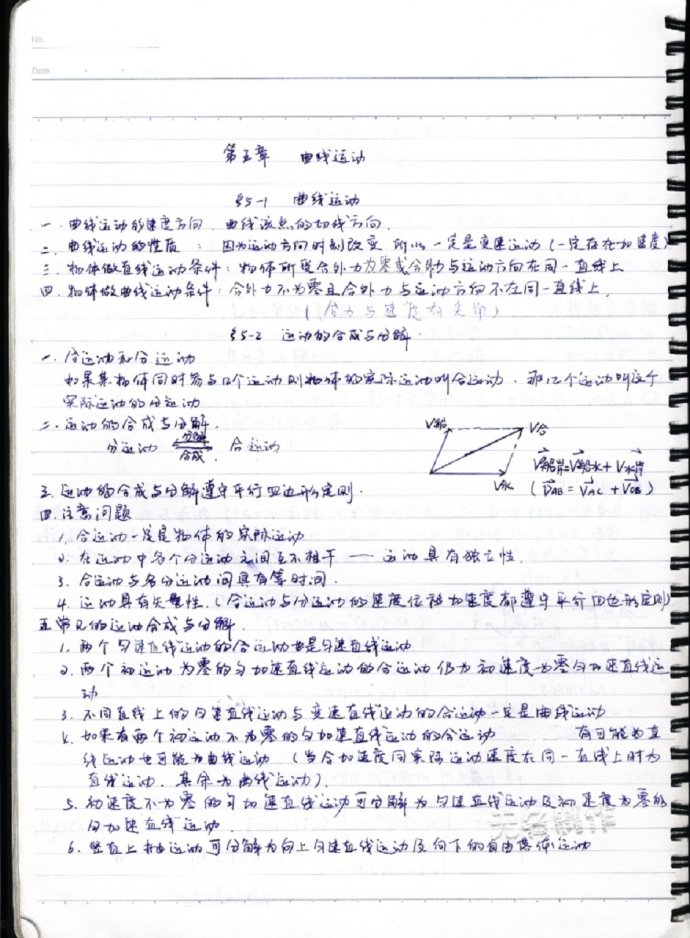 No.
Date
第五章 曲线运动
§5-1 曲线运动
一. 曲线运动的速度方向. 曲线该点的切线方向.
二. 曲线运动的性质: 因为运动方向时刻改变 所以一定是变速运动(一定存在加速度)
三. 物体做直线运动条件: 物体所受合外力为零或合外力与运动方向在同一直线上
四. 物体做曲线运动条件: 合外力不为零且合外力与运动方向不在同一直线上.
(合力与速度有夹角)
§5-2 运动的合成与分解.
一. 合运动和分运动
如果某物体同时参与几个运动则物体的实际运动叫合运动. 那几个运动叫这个
实际运动的分运动
二. 运动的合成与分解.
分运动 分解 合成 合运动
V船 V合
V水
V船岸=V船水+V水岸
(VAB = VAC + VCB)
三. 运动的合成与分解遵守平行四边形定则.
四. 注意问题
1. 合运动一定是物体的实际运动
2. 在运动中各个分运动之间互不相干 —— 运动具有独立性.
3. 合运动与各分运动间具有等时间.
4. 运动具有矢量性.(合运动与分运动的速度位移加速度都遵守平行四边形定则)
五. 常见的运动合成与分解.
1. 两个匀速直线运动的合运动也是匀速直线运动
2. 两个初运动为零的匀加速直线运动的合运动仍为初速度为零匀加速直线运
动
3. 不同直线上的匀速直线运动与变速直线运动的合运动一定是曲线运动
4. 如果有两个初运动不为零的匀加速直线运动的合运动 有可能为直
线运动也可能为曲线运动 (当合加速度同实际运动速度在同一直线上时为
直线运动. 其余为曲线运动).
5. 初速度不为零的匀加速直线运动可分解为匀速直线运动及初速度为零的
匀加速直线运动.
6. 竖直上抛运动可分解为向上匀速直线运动及向下的自由落体运动